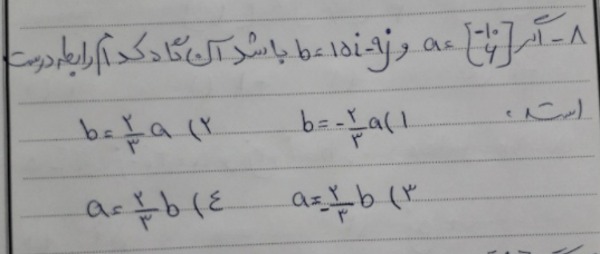 ۸- اگر a = [-۱۰ ۶] و b = ۱۵i - ۹j باشد آن گاه کدام رابطه درست
است.
۱) b = -۲/۳ a ۲) b = ۲/۳ a
۳) a = -۲/۳ b ۴) a = ۲/۳ b